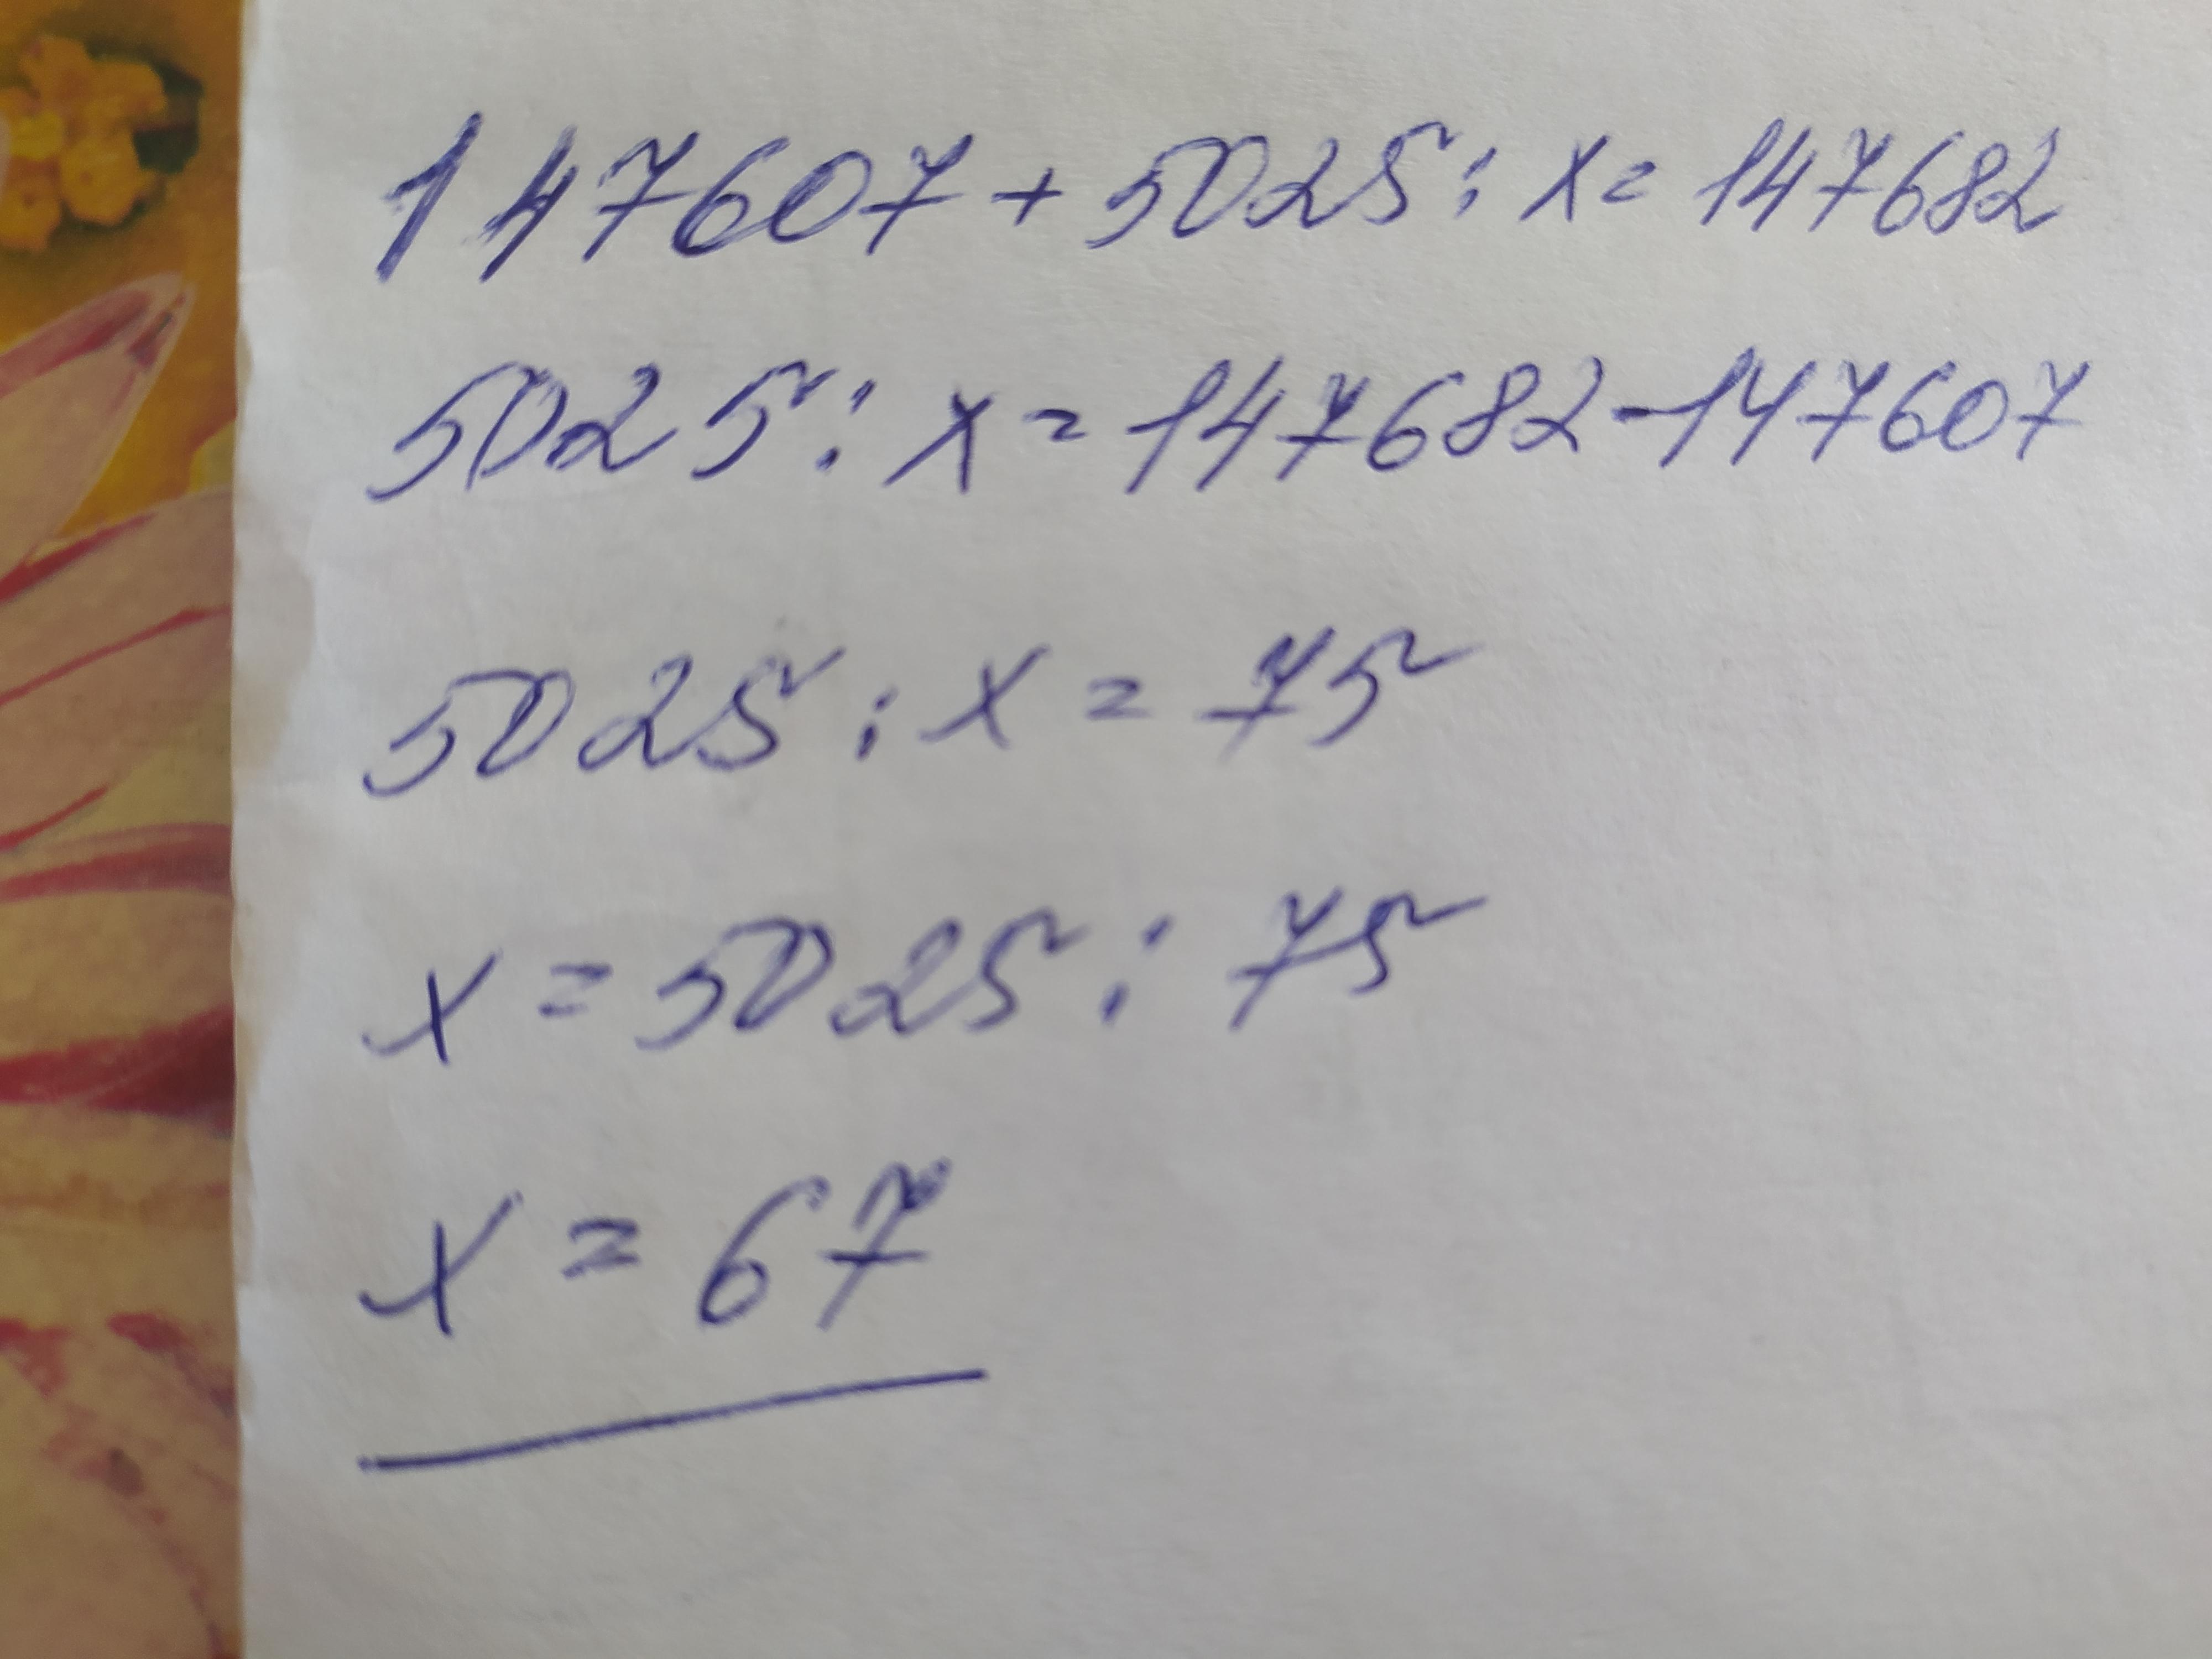 147607 + 5025 : x = 147682
5025 : x = 147682 - 147607
5025 : x = 75
x = 5025 : 75
x = 67